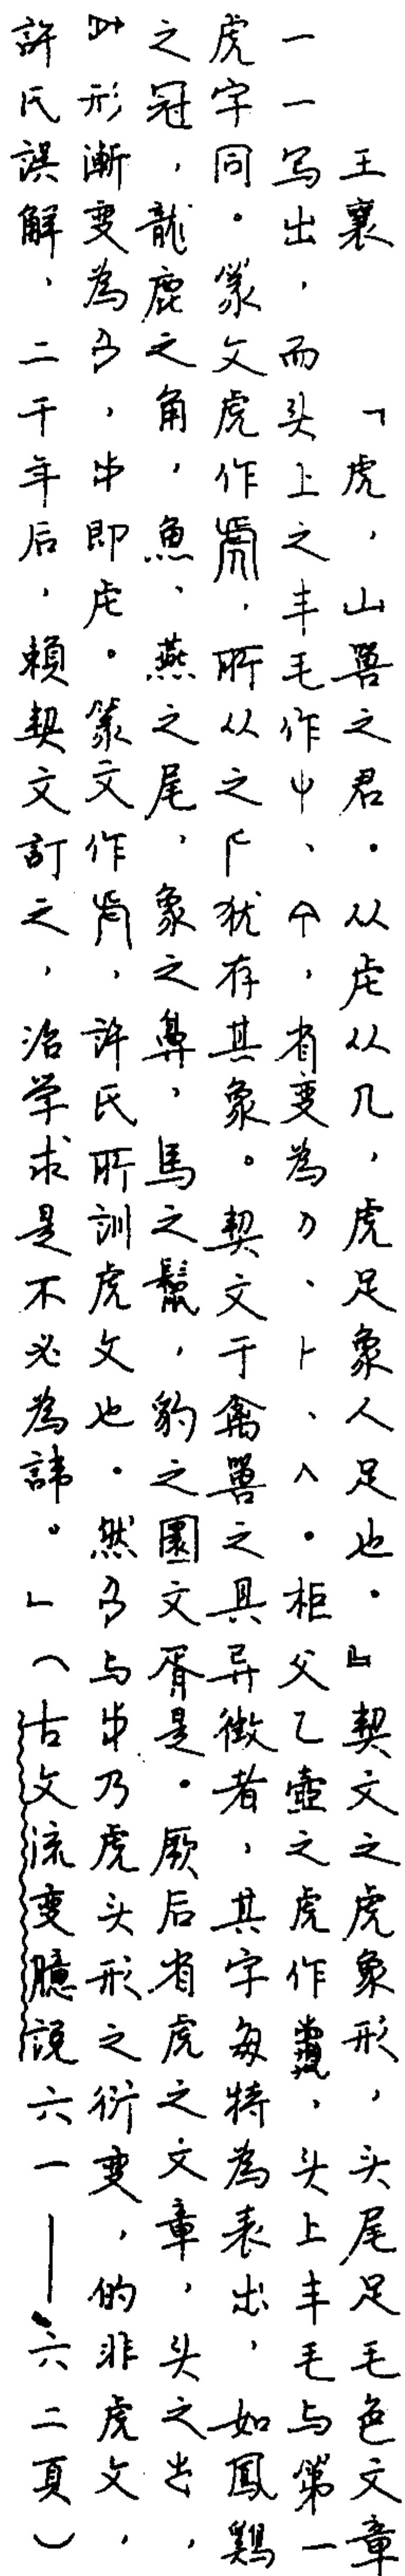 王襄　「虎，山兽之君。从虍从几，虎足象人足也。』契文之虎象形，头尾足毛色文章
一一写出，而头上之丰毛作、，省变为、卜、入。柜父乙壶之虎作，头上丰毛与第一
虎字同。篆文虎作，所从之犹存其象。契文于禽兽之具异徵者，其字每特为表出，如鳳鷄
之冠，龍鹿之角，魚、燕之尾，象之鼻，馬之鬣，豹之圜文胥是。厥后省虎之文章，头之出，
形漸变為，即虍。篆文作，許氏所訓虎文也。然与乃虎头形之衍变，的非虎文，
許氏誤解，二千年后，賴契文訂之，治学求是不必為諱。」（古文流变臆説六一——六二頁）